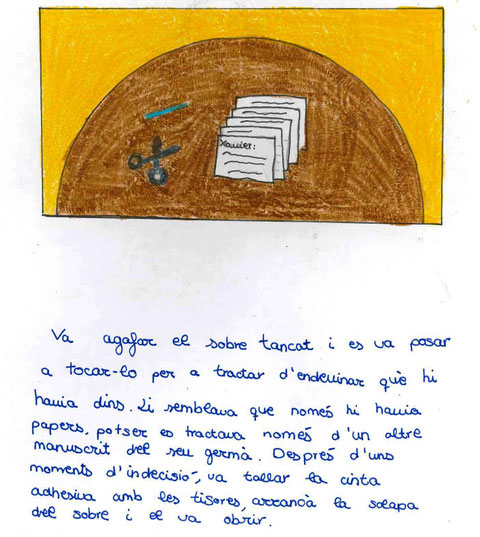 Xavier:
Va agafar el sobre tancat i es va posar
a tocar-lo per a tractar d'endevinar què hi
havia dins. Li semblava que només hi havia
papers, potser es tractava només d'un altre
manuscrit del seu germà. Després d'uns
moments d'indecisió, va tallar la cinta
adhesiva amb les tisores, arrancà la solapa
del sobre i el va obrir.